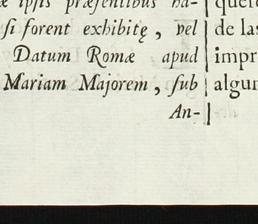 æ ipsis præsentibus ha-
si forent exhibitę, vel
Datum Romæ apud
Mariam Majorem, sub
An-
de las
impr
algun